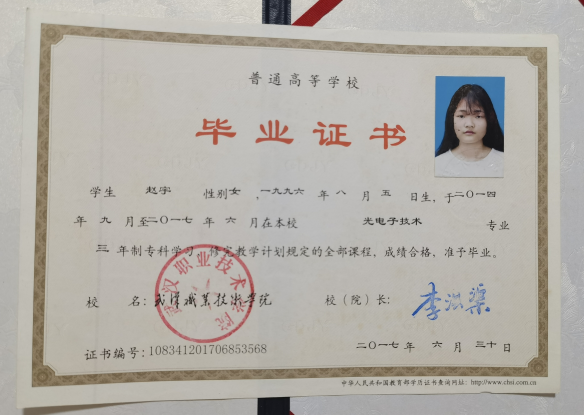 普通高等学校
毕业证书
学生 赵宇 性别 女 ，一九九六 年 八 月 五 日生，于二〇一四
年 九 月至二〇一七 年 六 月在本校 光电子技术 专业
三 年制专科学习，修完教学计划规定的全部课程，成绩合格，准予毕业。
武汉职业技术学院
校 名：武汉职业技术学院 校（院）长：
证书编号：108341201706853568 二〇一七年 六 月 三十 日
中华人民共和国教育部学历证书查询网址：http://www.chsi.com.cn